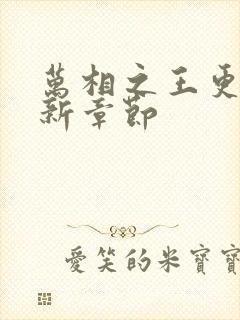 萬相之王更
新章節
愛笑的米寶寶